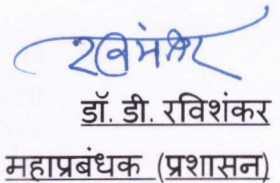 रविशंकर
डॉ. डी. रविशंकर
महाप्रबंधक (प्रशासन)